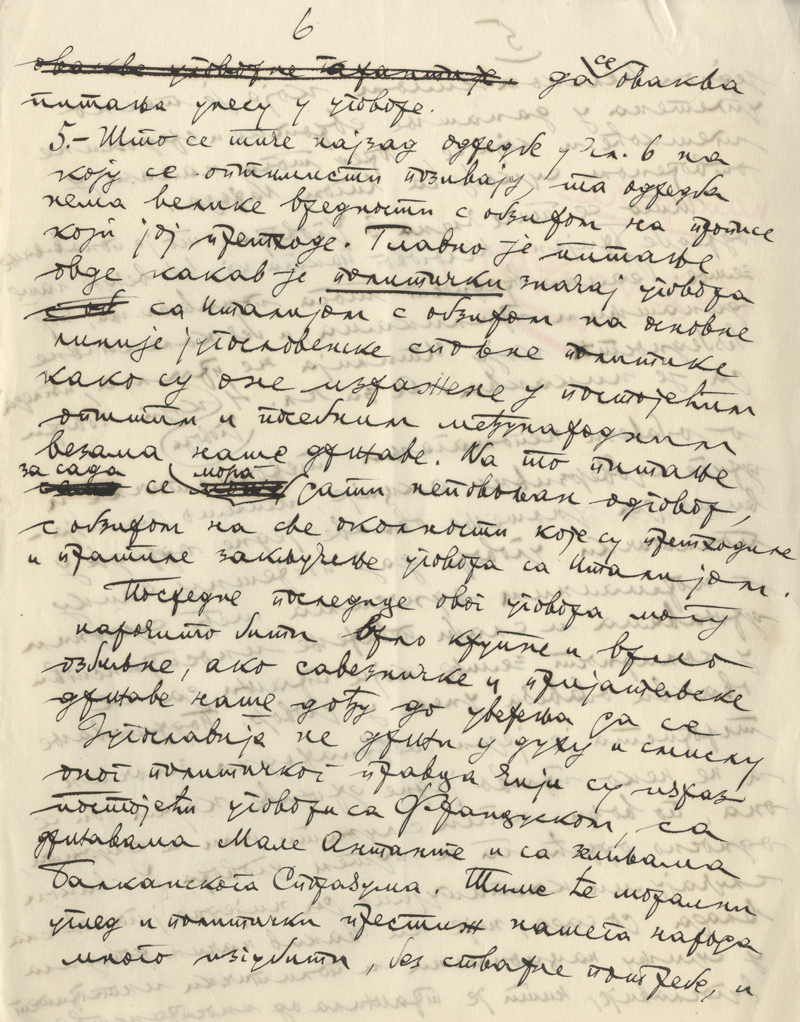 6
овакве уговорне гарантије. да се оваква
питања унесу у уговоре.
5.- Што се тиче најзад одредбе у чл. 6 на
коју се оптимисти позивају, та одредба
нема велике вредности с обзиром на прописе
који јој претходе. Главно је питање
овде какав је политички значај уговора
са Италијом с обзиром на основне
линије југословенске спољне политике
како су оне изражене у постојећим
општим и посебним међународним
везама наше државе. На то питање
за сада мора
се дати неповољан одговор,
с обзиром на све околности које су претходиле
и пратиле закључење уговора са Италијом.
Посредне последице овог уговора могу
нарочито бити врло крупне и врло
озбиљне, ако савезничке и пријатељске
државе наше дођу до уверења да се
Југославија не држи у духу и смислу
оног политичког правца чији су израз
постојећи уговори са Француском, са
државама Мале Антанте и са земљама
Балканскога Споразума. Тиме ће морални
углед и политички престиж нашега народа
много изгубити, без стварне потребе, и